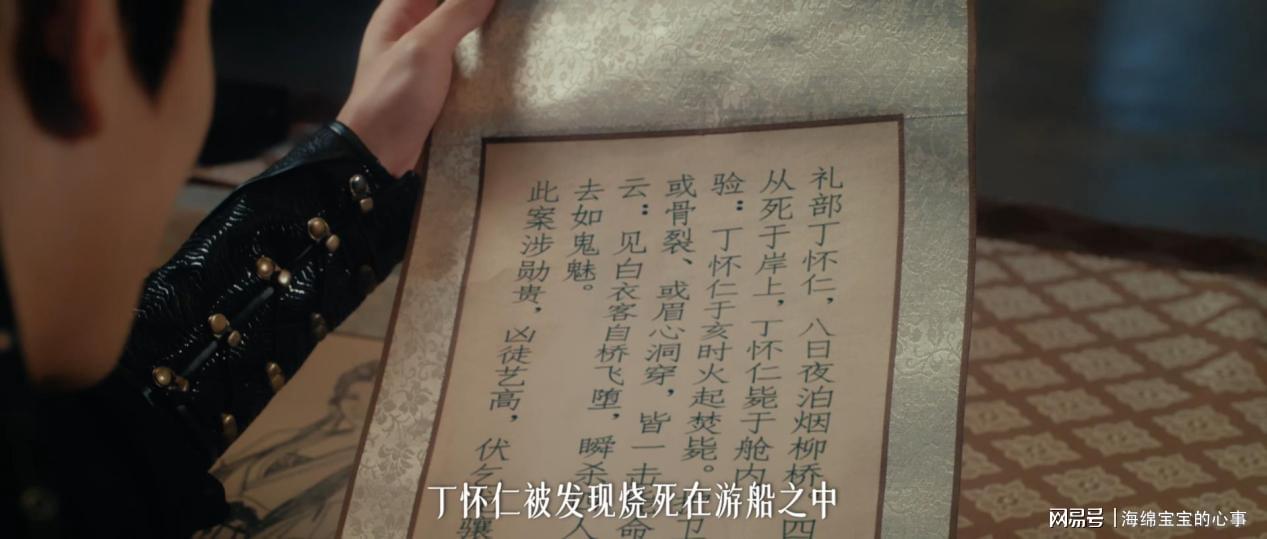 礼部丁怀仁，八日夜泊烟柳桥 四
从死于岸上，丁怀仁毙于舱内
验：丁怀仁于亥时火起焚毙。 卫
或骨裂、或眉心洞穿，皆一击 命
云：见白衣客自桥飞堕，瞬杀 人
去如鬼魅。
此案涉勋贵，凶徒艺高，伏乞 骧
丁怀仁被发现烧死在游船之中
网易号 | 海绵宝宝的心事